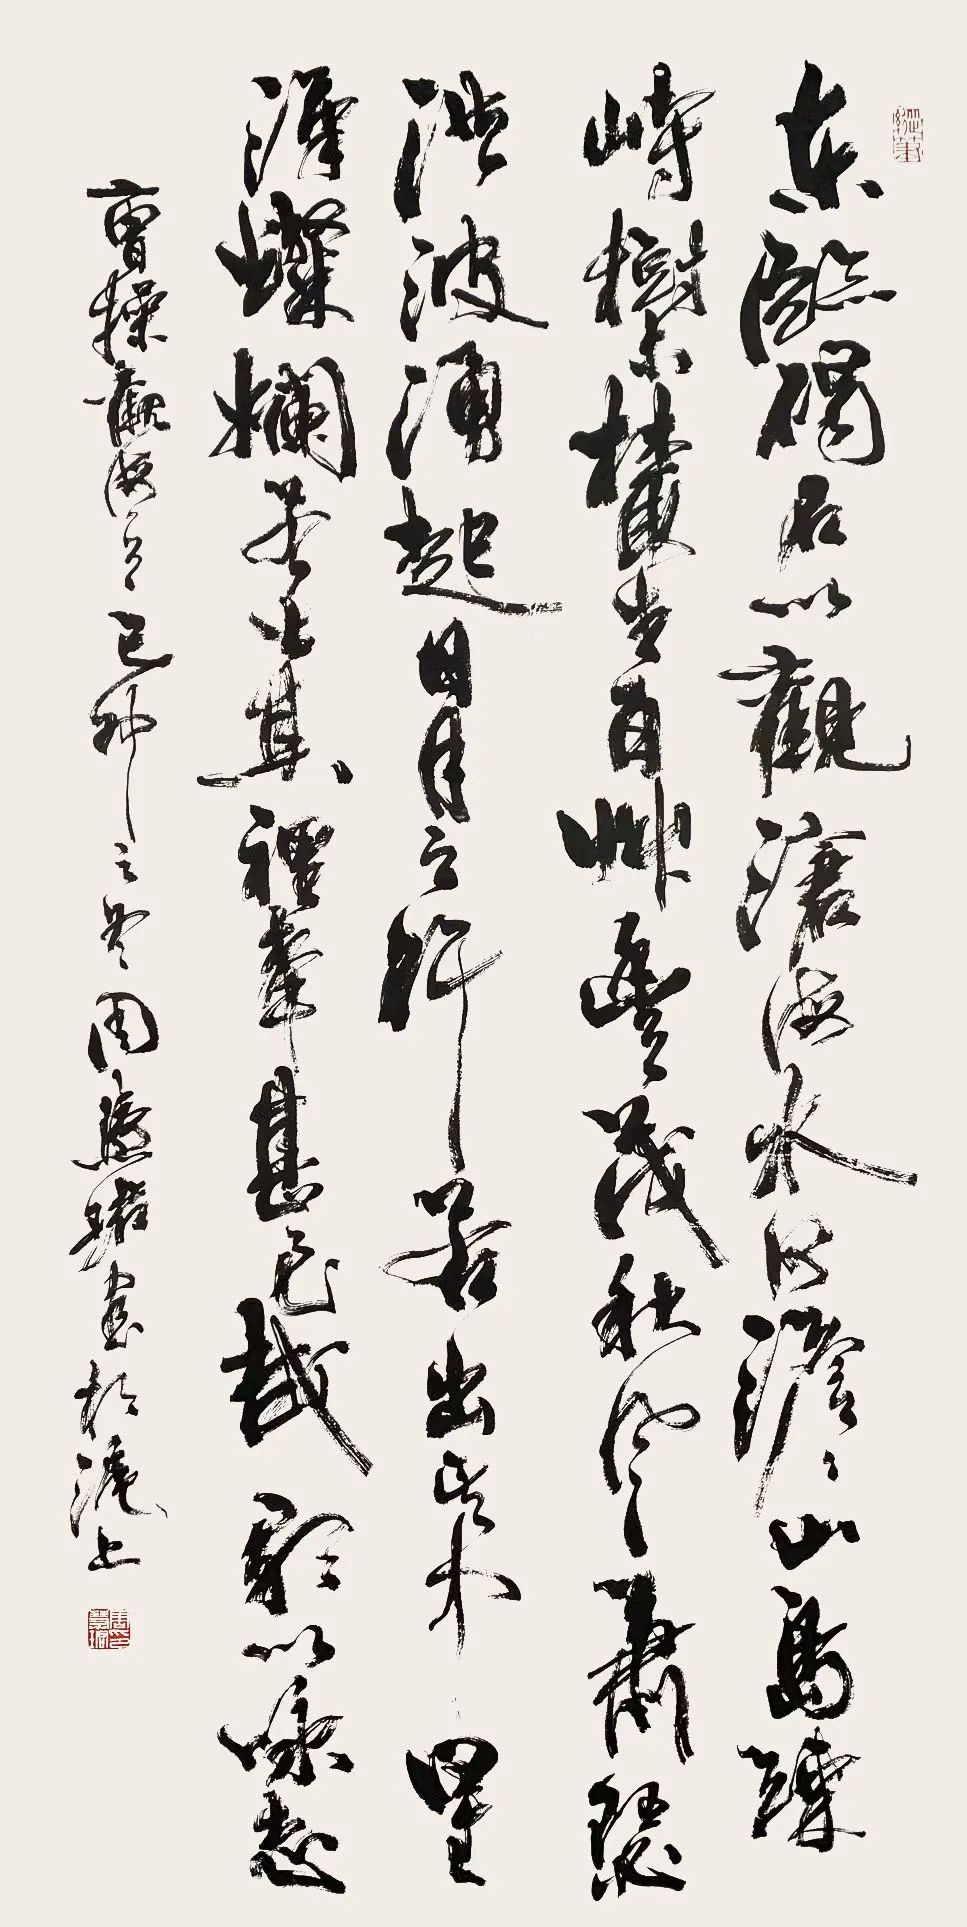 東臨碣石以觀滄海水何澹〻山島竦
峙樹木欉生百艸豐茂秋風蕭瑟
洪波湧起日月之行若出其中星
漢燦爛若出其裡幸甚至哉歌以詠志
曹操觀海 己卯之冬周慧珺書於滬上